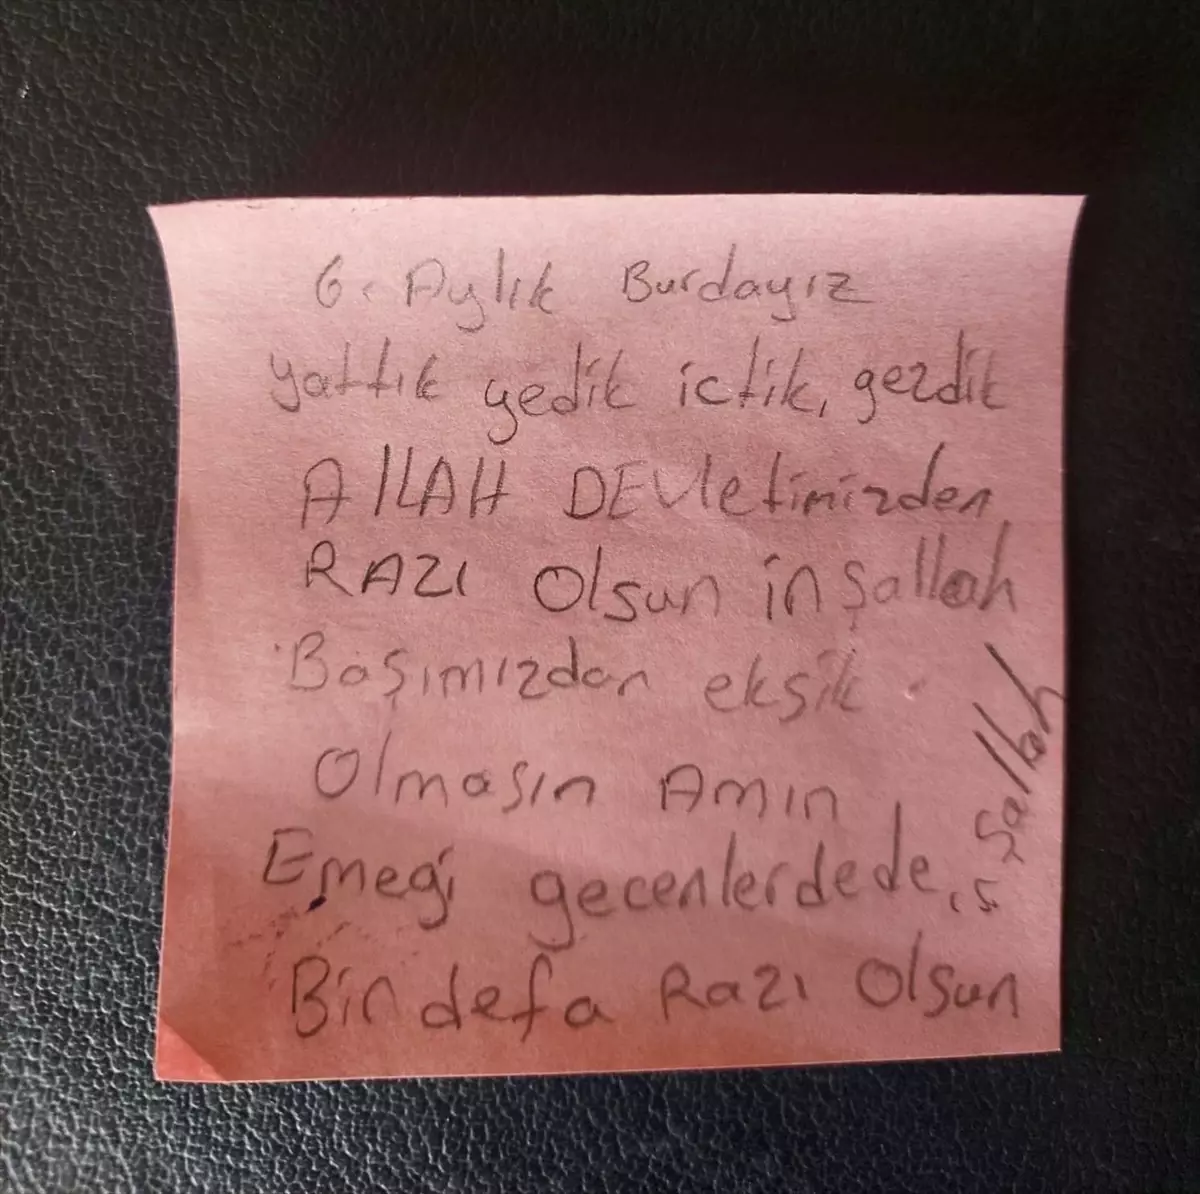 6. Aylık Burdayız
yattık yedik ictik, gezdik
AllAH DEVletimizden
RAZI Olsun inşallah
Başımızdan eksik
Olmasın Amın
Emeği gecenlerdede
Bin defa Razı Olsun
inşallah